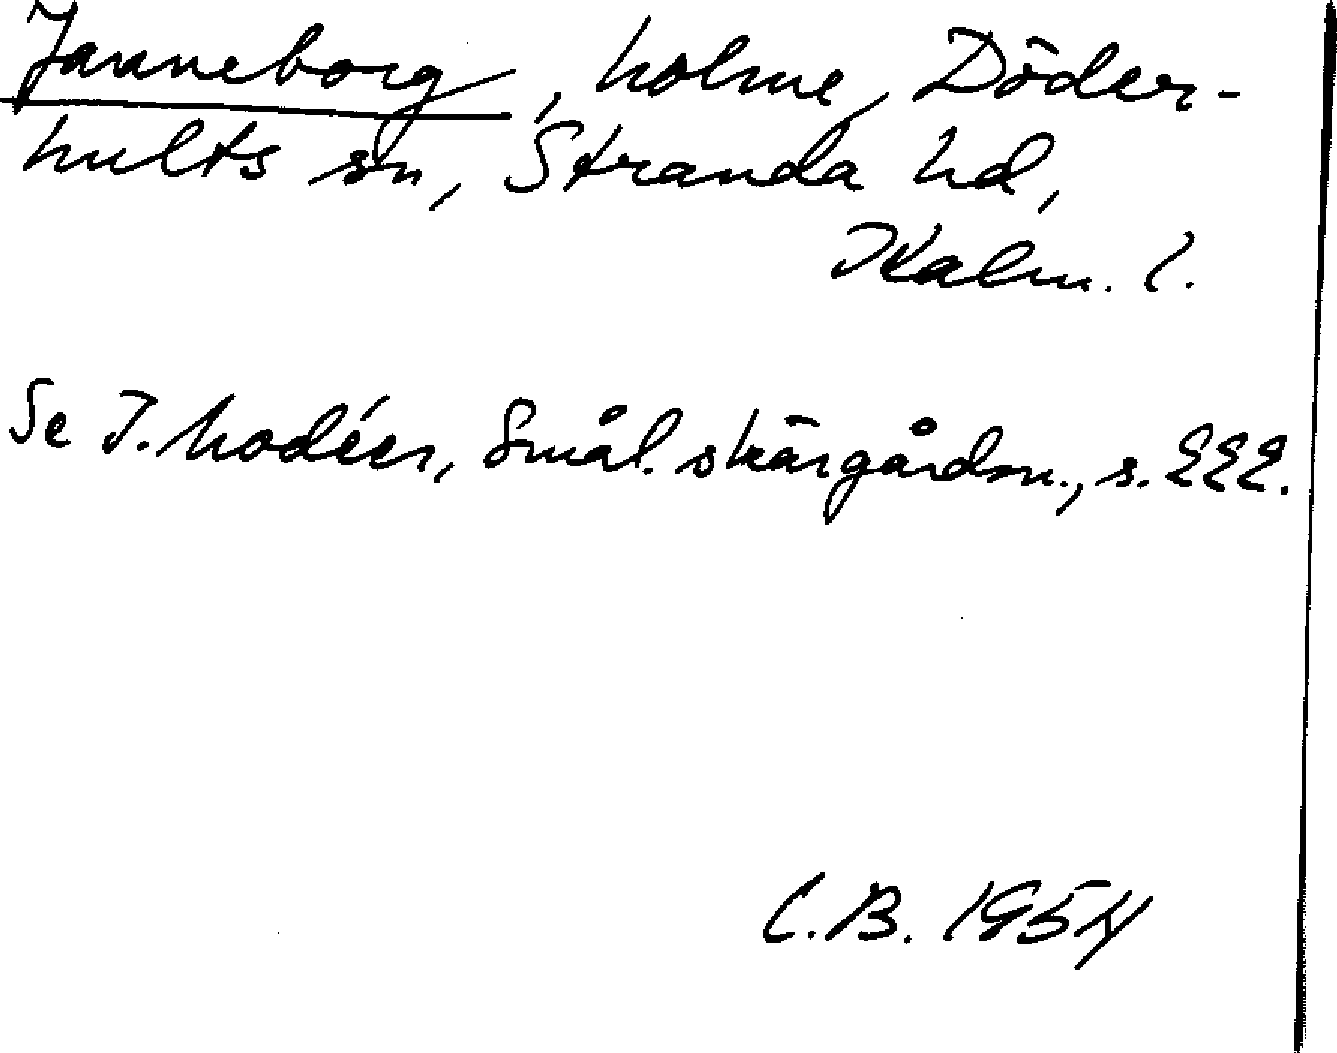 Janneborg, holme, Döder-
hults sn, Stranda hd,
Kalm. l.
Se I. Modéer, Smål. skärgårdsn., s. 222.
C.B. 1954